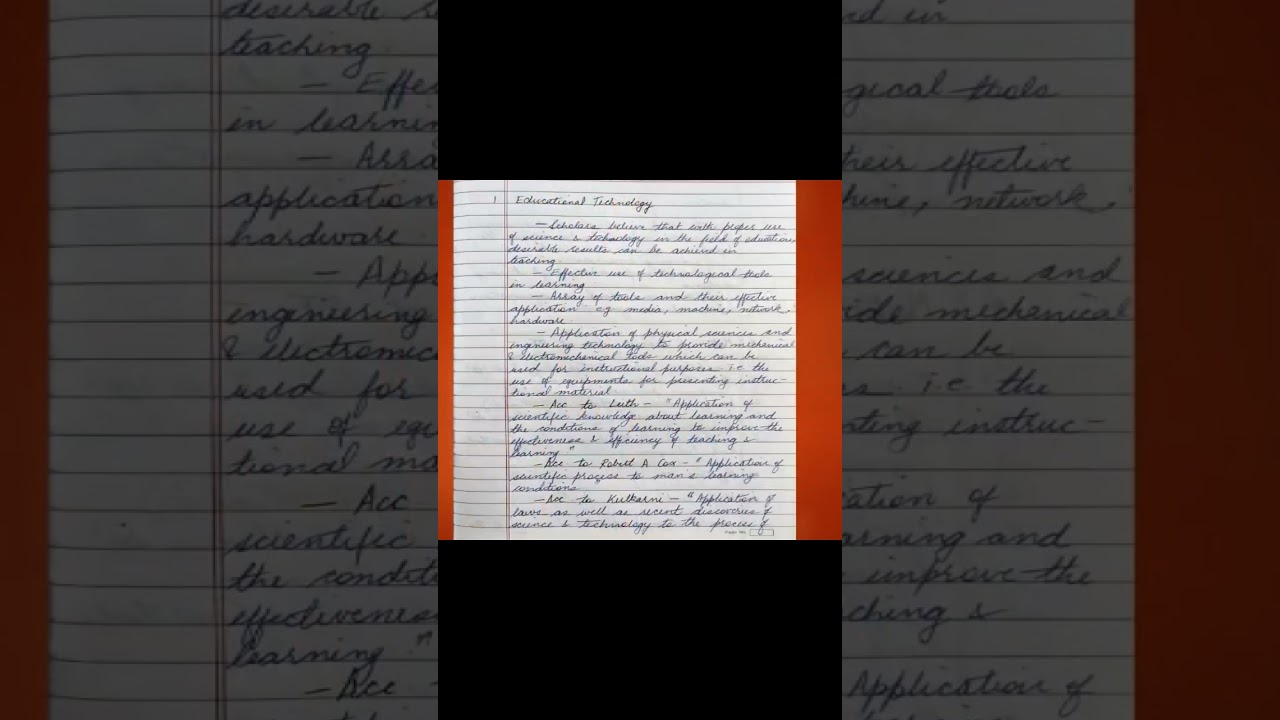 1 Educational Technology
— Scholars believe that with proper use
of science & technology in the field of education,
desirable results can be achieved in
teaching.
— Effective use of technological tools
in learning
— Array of tools and their effective
application eg media, machine, network,
hardware.
— Application of physical sciences and
engineering technology to provide mechanical
& electromechanical tools which can be
used for instructional purposes i.e the
use of equipments for presenting instruc-
tional material
— Acc to Leith — "Application of
scientific knowledge about learning and
the conditions of learning to improve the
effectiveness & efficiency of teaching &
learning"
— Acc to Robert A Cox — "Application of
scientific process to man's learning
conditions"
— Acc to Kulkarni — "Application of
laws as well as recent discoveries of
science & technology to the process of